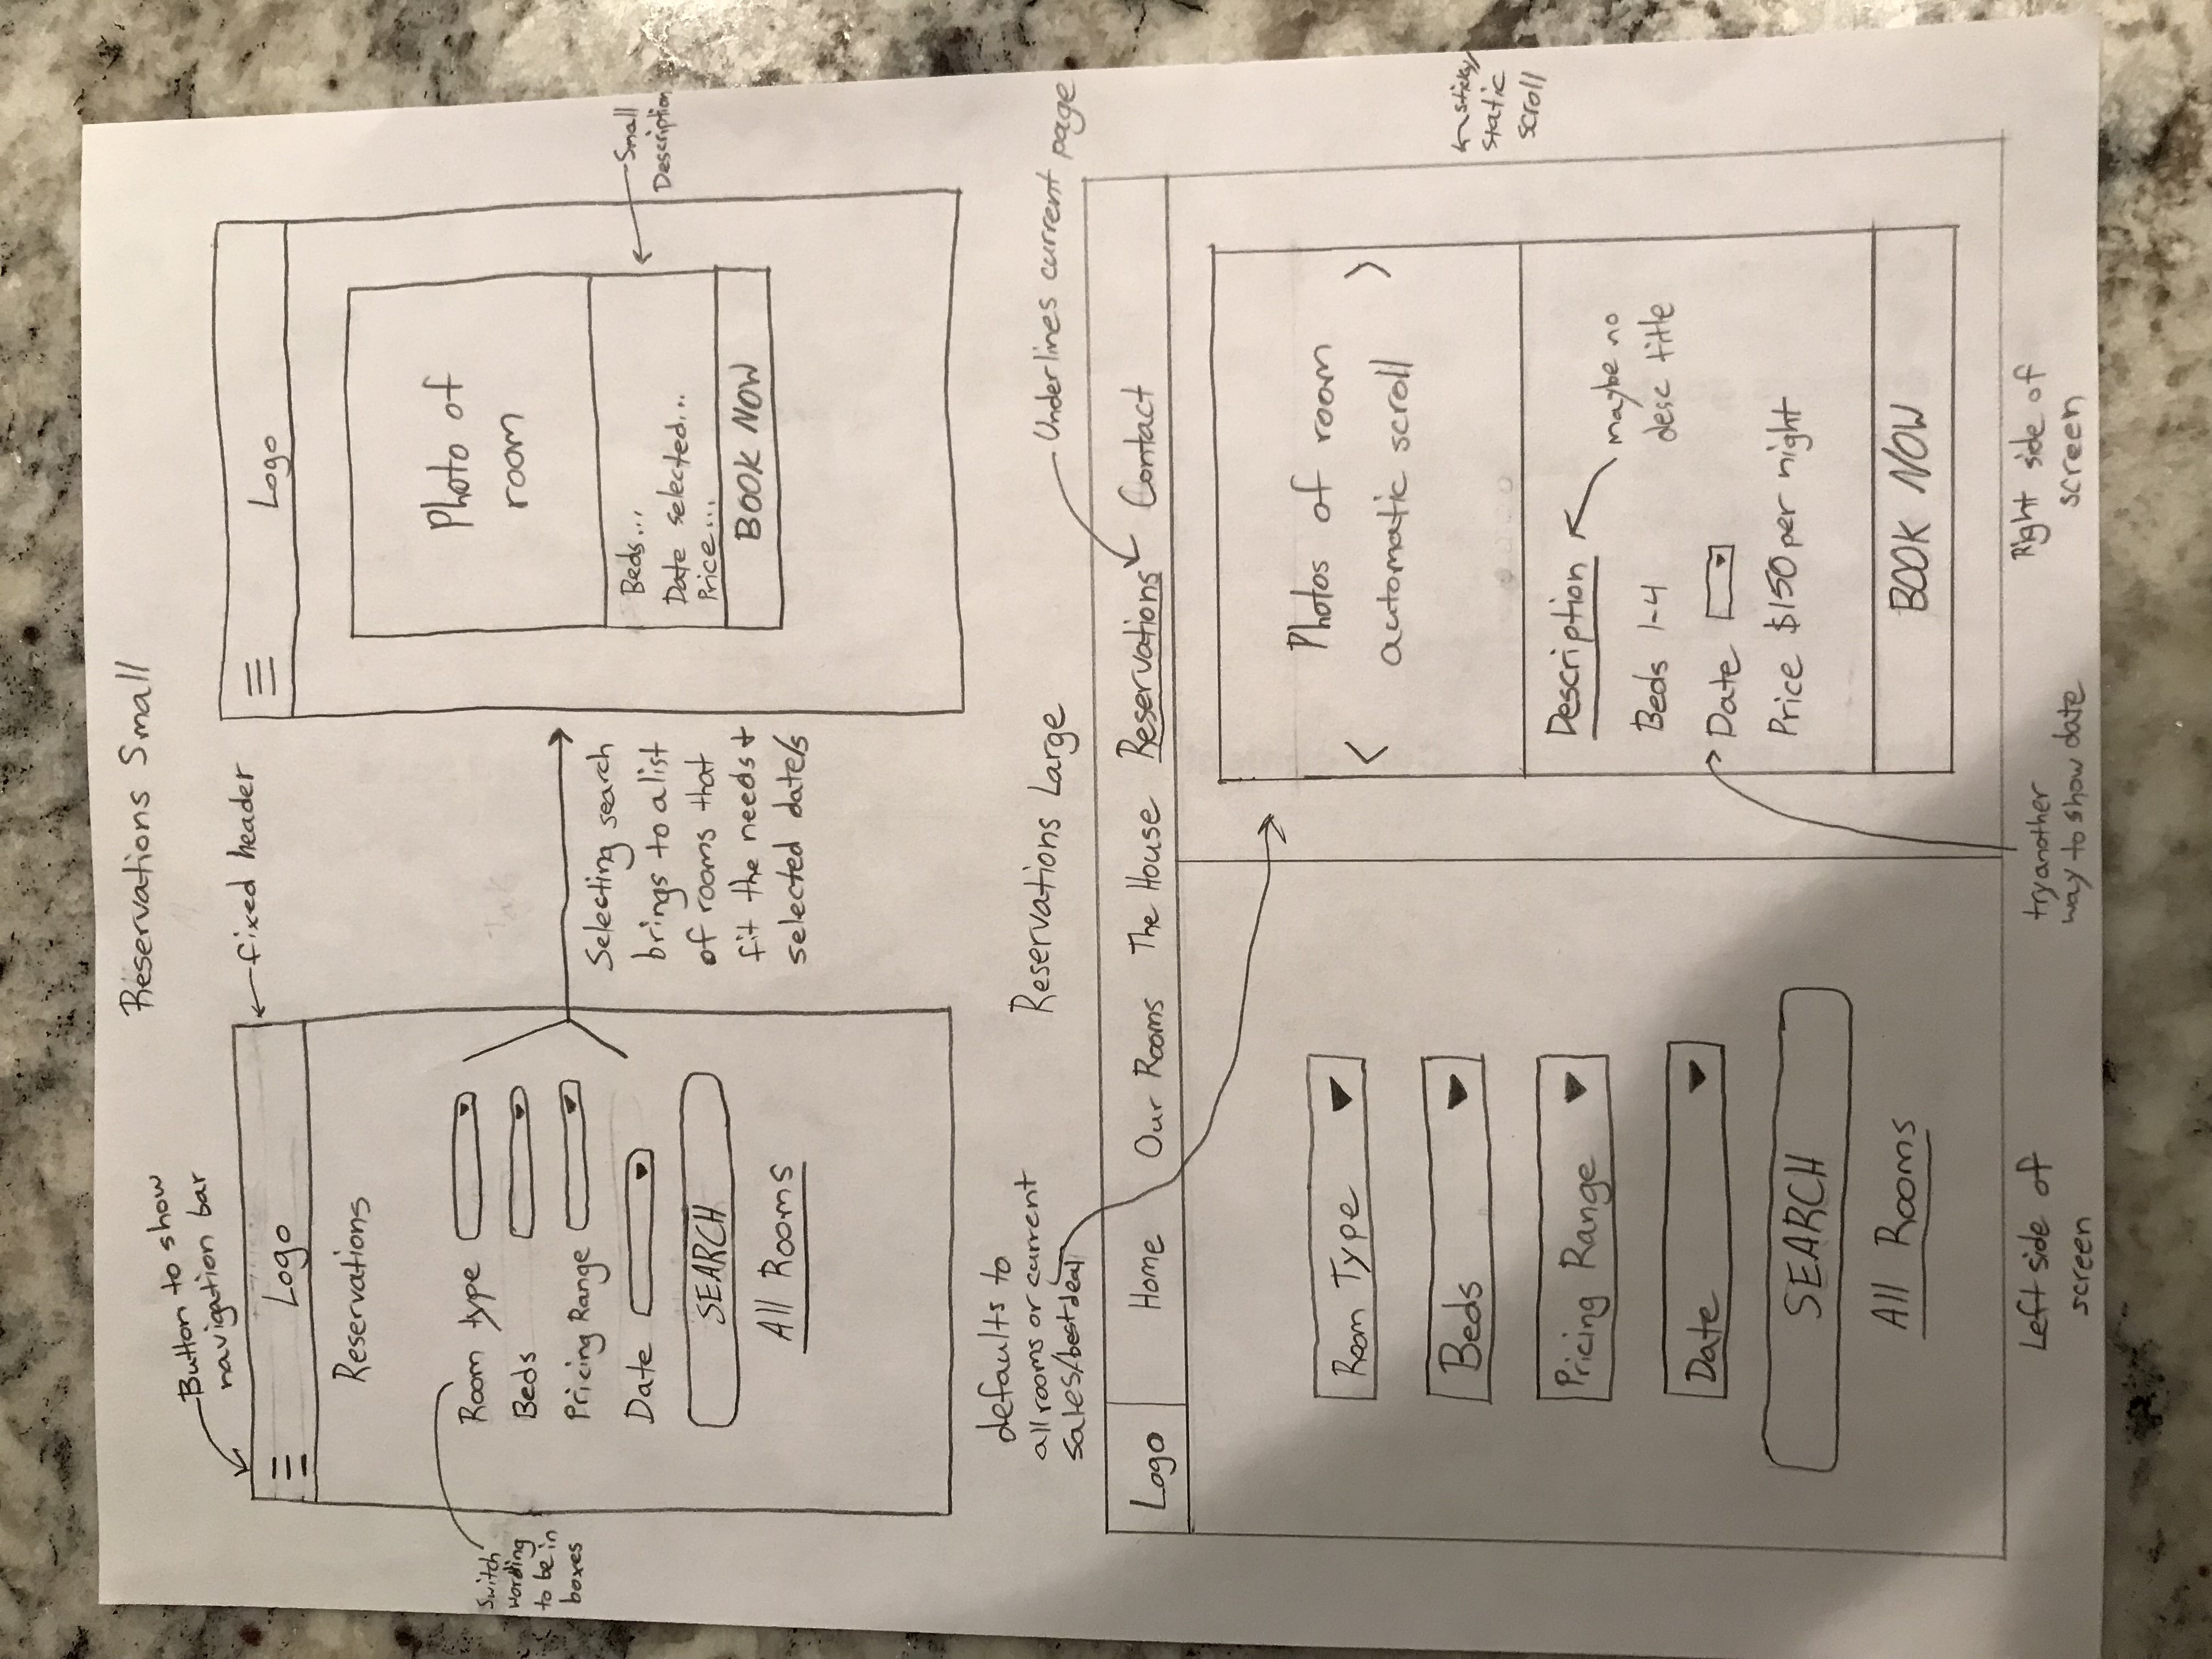 Reservations Small
Button to show
navigation bar
fixed header
Logo
Reservations
Switch
wording
to be in
boxes
Room type
Beds
Pricing Range
Date
SEARCH
All Rooms
Selecting search
brings to a list
of rooms that
fit the needs +
selected date/s
Logo
Photo of
room
Beds...
Date selected...
Price...
BOOK NOW
Small
Description
defaults to
all rooms or current
sales/best deal
Reservations Large
Underlines current page
Logo Home Our Rooms The House Reservations Contact
Room Type
Beds
Pricing Range
Date
SEARCH
All Rooms
Photos of room
automatic scroll
< >
Description
maybe no
desc title
Beds 1-4
Date
Price $150 per night
BOOK NOW
sticky/
static
scroll
Left side of
screen
try another
way to show date
Right side of
screen